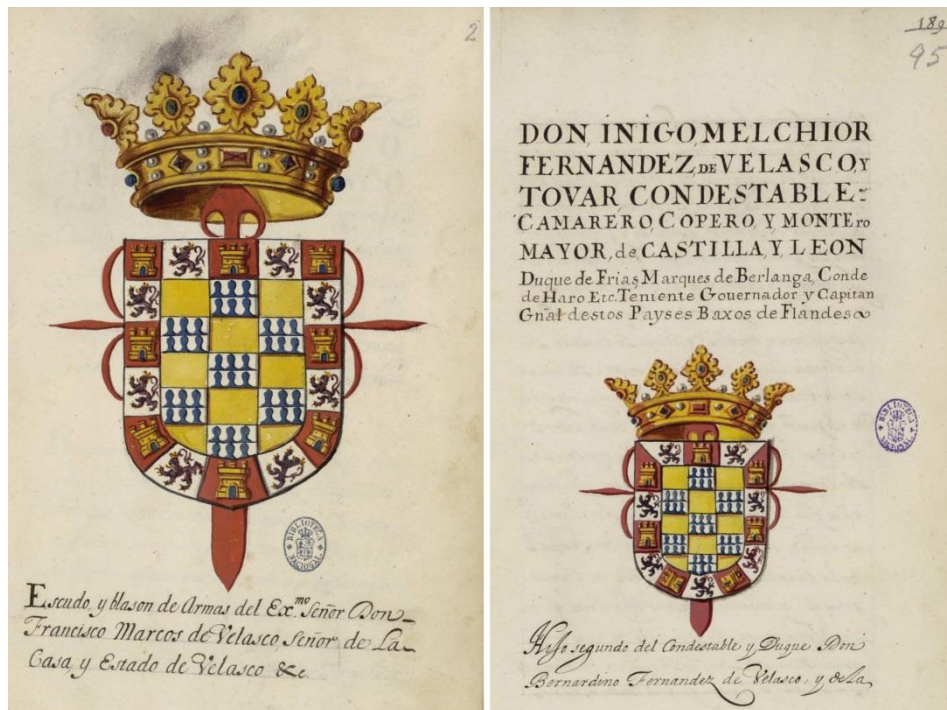 2
Escudo, y blason de Armas del Ex.mo Señor Don
Francisco Marcos de Velasco, Señor de La
Casa, y Estado de Velasco &c.
BIBLIOTECA
NACIONAL
189
95
DON, INIGO, MELCHIOR
FERNANDEZ, DE VELASCO, Y
TOVAR CONDESTABLE
CAMARERO, COPERO, Y MONTEro
MAYOR, de CASTILLA, Y LEON
Duque de Frias, Marques de Berlanga, Conde
de Haro Etc. Teniente Gouernador y Capitan
Gnâl destos Payses Baxos de Flandes
BIBLIOTECA
NACIONAL
Hijo segundo del Condestable y Duque Don
Bernardino Fernandez de Velasco, y de La